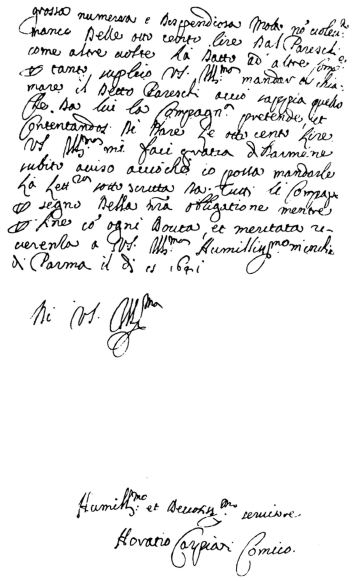 grossa numerosa e dispendiosa molt. nō volea
manco delle otto cento lire dal Pareschi
come altre volte la datto ad altre comp.e
& tanto suplico VS. Ill.ma mandar a chia-
mare il detto Pareschi acciò sappia quello
che da lui la Compagn.a pretende, et
Contentandosi di dare le otto cento lire
VS. Ill.ma mi faci gratia di darmene
subito aviso acciochè io possa mandarle
la lett.ra sotto scritta da tutti le Compag.
& segno della mia obligatione mentre
& fine cō ogni douta, et meritata re-
uerenza a VS. Ill.ma Humilliss.mo m'inchi
di Parma il di 15 1641
Di VS. Ill.ma
Humill.mo et Deuotiss.mo seruitore
Horatio Comico.